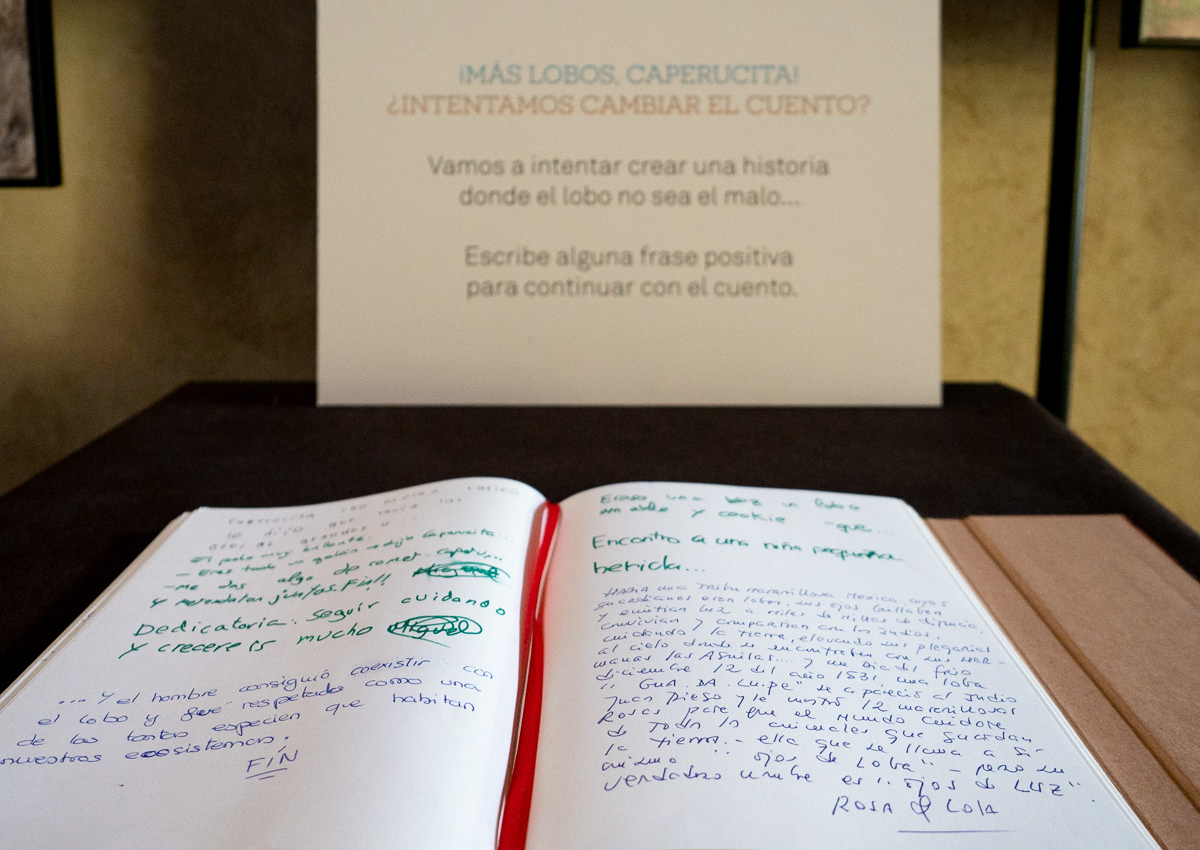 ¡MÁS LOBOS, CAPERUCITA!
¿INTENTAMOS CAMBIAR EL CUENTO?
Vamos a intentar crear una historia
donde el lobo no sea el malo...
Escribe alguna frase positiva
para continuar con el cuento.
Caperucita
lo dijo que
El pelo muy brillante.
- Eres todo un galán - dijo Caperucita...
- Me das algo de comer.
Y merendaron juntos. Fin!!
Dedicatoria. Seguir cuidando
y crecereis mucho Miguel
... Y el hombre consiguió coexistir con
el lobo y fue respetado como una
de las tantas especies que habitan
nuestros ecosistemas.
FÍN
Erase una vez un lobo
amable y cookie que...
Encontro a una niña pequeña
herida...
Había una tribu maravillosa Mexica cuyos
guardianes eran lobos y sus ojos brillaban
y emitian luz a miles de millas de distancia.
convivian y compartian con los indios,
cuidando la tierra, elevando sus plegarias
al cielo donde se encontraban con sus her-
manas las Aguilas.... y un dia de frio
diciembre 12 del año 1531, una loba
"GUA.DA.LU.PE" se apareció al Indio
Juan Diego y le mostró 12 maravillosas
Rosas para que el Mundo cuidara
de Todos los animales que guardan
la tierra - ella que se llama a sí
misma "ojos de loba" - pero su
verdadero nombre es "ojos de LUZ".
ROSA Lola